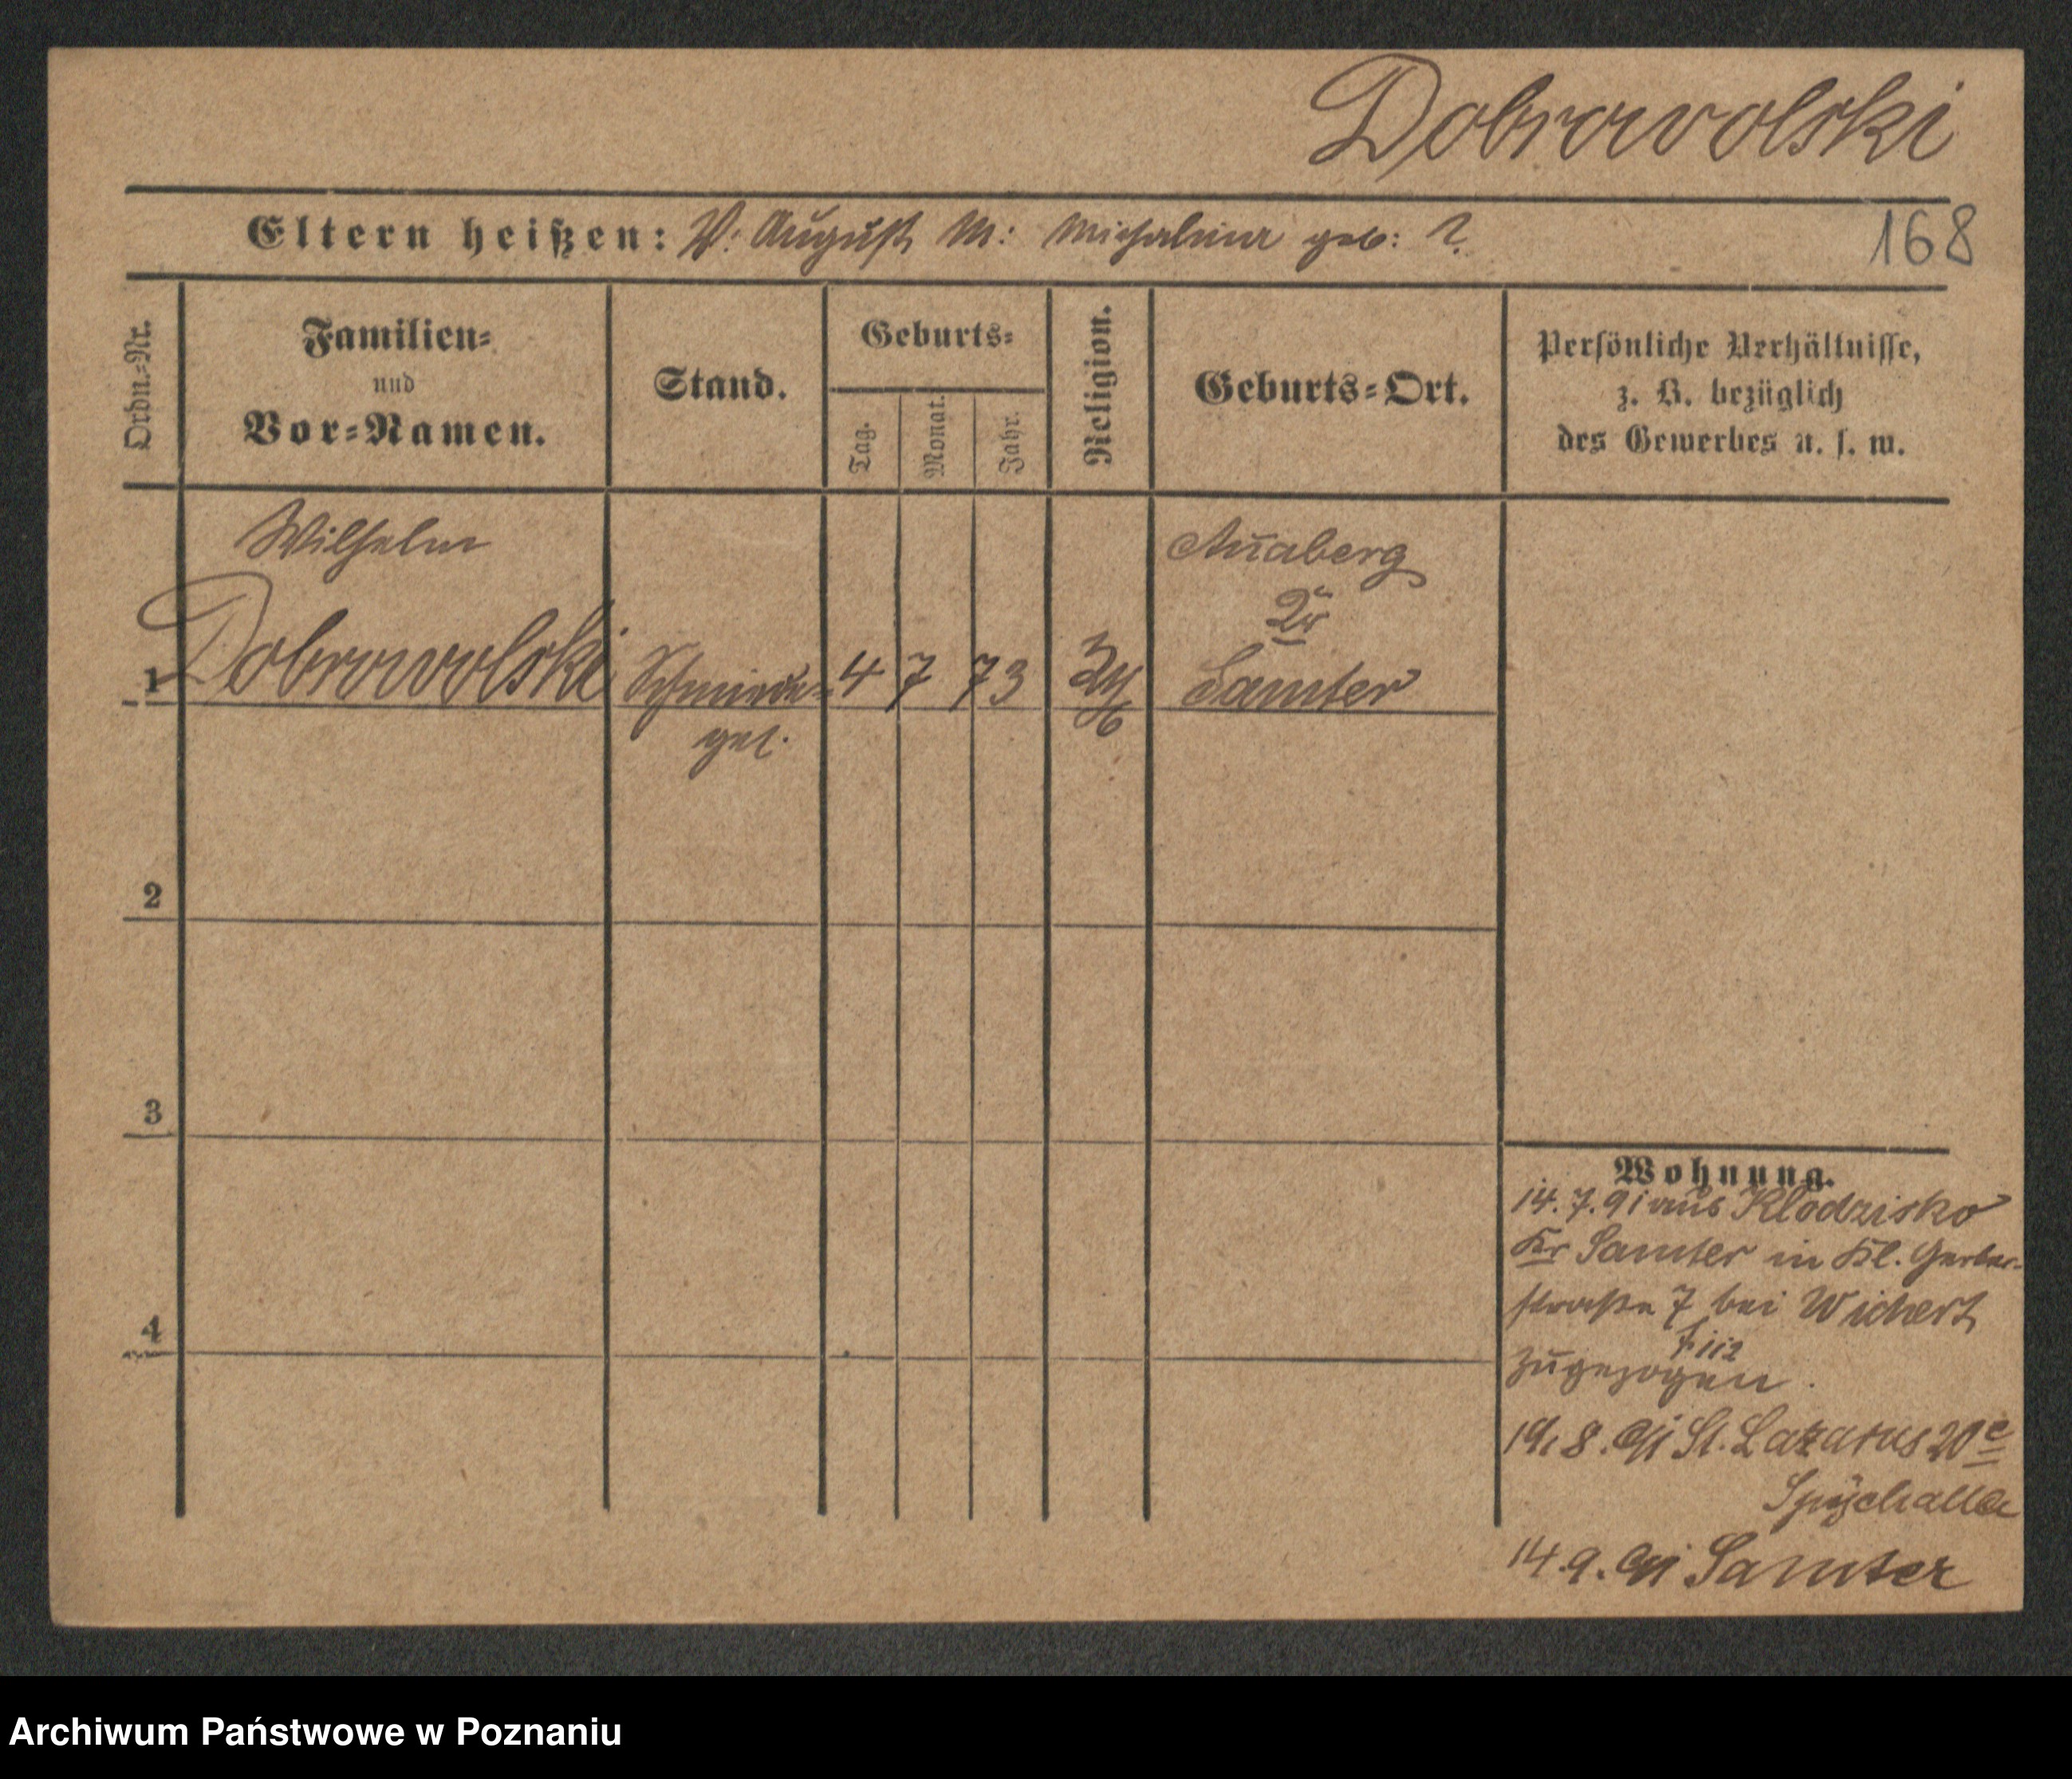 Dobrowolski
168
Eltern heißen: V: August, M: Michalina geb: ?
Ordn.-Nr.
Familien-
und
Vor-Namen.
Stand.
Geburts-
Tag.
Monat.
Jahr.
Religion.
Geburts-Ort.
Persönliche Verhältnisse,
z. B. bezüglich
des Gewerbes u. s. w.
Wilhelm
Annaberg
Kr
1 Dobrowolski Schmiede- 4 7 73 Samter
ges.
2
3
4
Wohnung.
14. 7. 91 aus Klodzisko
Kr Samter in Kl. Gerber-
straße 7 bei Wichert
f. 112
zugezogen.
19. 8. 91 St. Lazarus 20 c
Spÿchalla
14. 9. 91 Samter
Archiwum Państwowe w Poznaniu